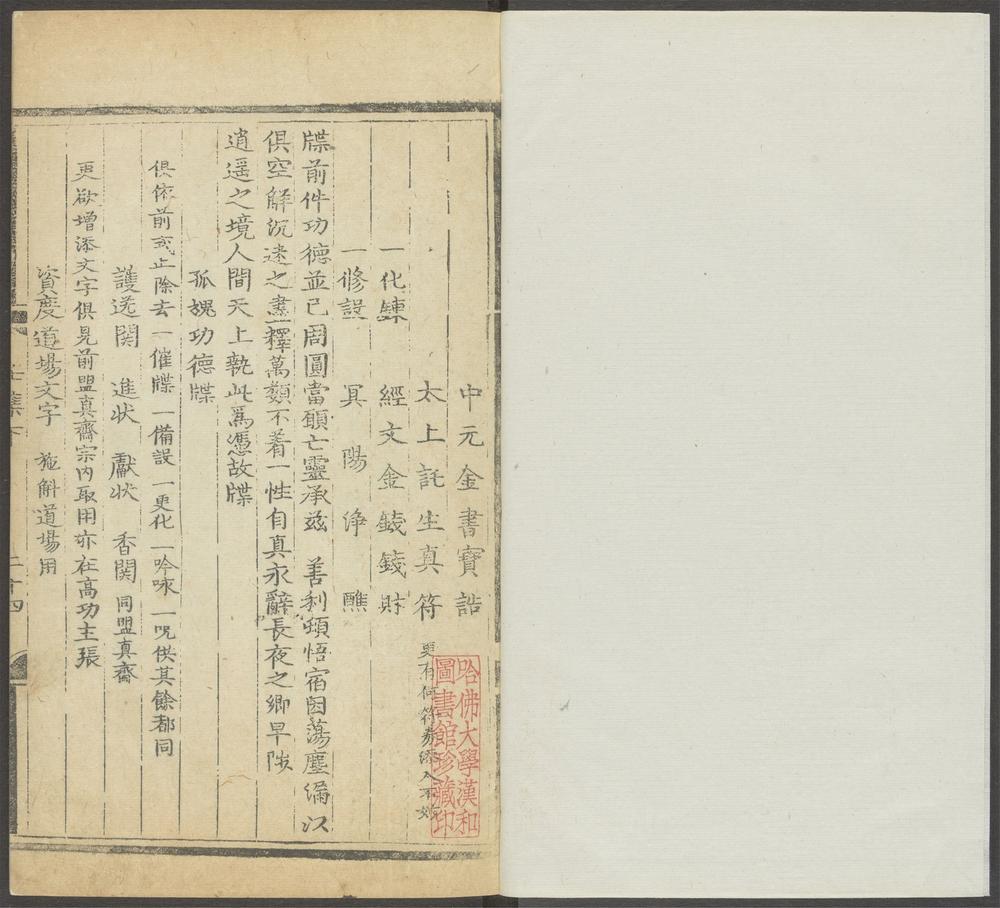 中元金書寶誥
太上託生真符 更有何符券添入不妨
一化鍊 經文金錢錢財
一修設 冥陽淨醮
牒前件功德並已周圓當願亡靈承兹 善利頓悟宿因蕩塵漏以
俱空觧沉迷之盡釋萬類不着一性自真永辭長夜之鄉早陟
逍遥之境人間天上執此爲憑故牒
孤魂功德牒
俱依前式止除去一催牒一備設一更化一吟咏一呪供其餘都同
護送関 進状 獻状 香関 同盟真齋
更欲增添文字俱見前盟真齋宗内取用亦在高功主張
資度道場文字 施斛道場用
二十四
哈佛大學漢和
圖書館珍藏印